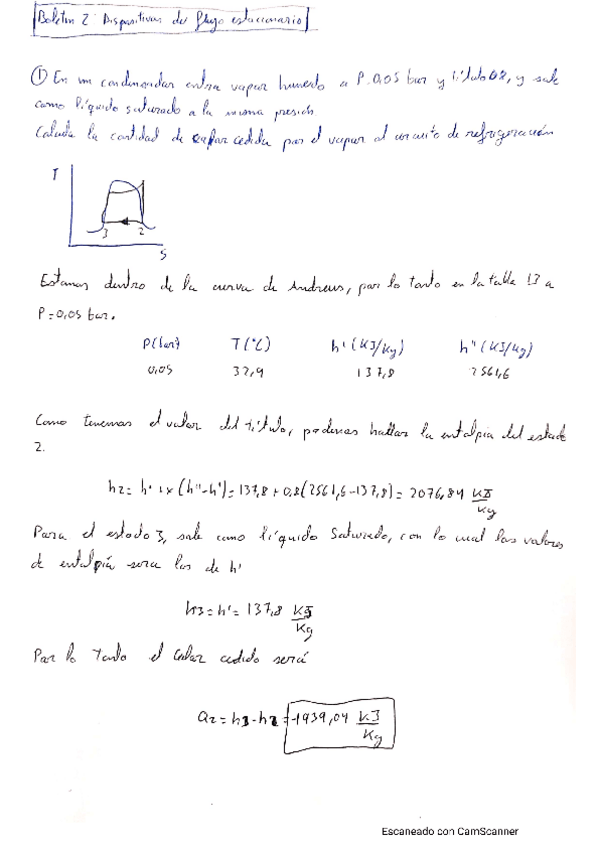 Boletín 2 Dispositivos de flujo estacionario
① En un condensador entra vapor humedo a P 0,05 bar y título 0,8, y sale
como líquido saturado a la misma presión
Calcula la cantidad de calor cedida por el vapor al circuito de refrigeración
T
3 2
S
Estamos dentro de la curva de Andrews, por lo tanto en la tabla 13 a
P=0,05 bar.
P(bar) T(°C) h' (KJ/Kg) h'' (KJ/Kg)
0,05 32,9 137,8 2561,6
Como tenemos el valor del título, podemos hallar la entalpia del estado
2.
h2= h'+x(h''-h')=137,8+0,8(2561,6-137,8)= 2076,84 KJ/Kg
Para el estado 3, sale como líquido saturado, con lo cual los valores
de entalpía sera los de h'
h3=h'=137,8 KJ/Kg
Por lo tanto el calor cedido será
Q2=h3-h2=-1939,04 KJ/Kg
Escaneado con CamScanner